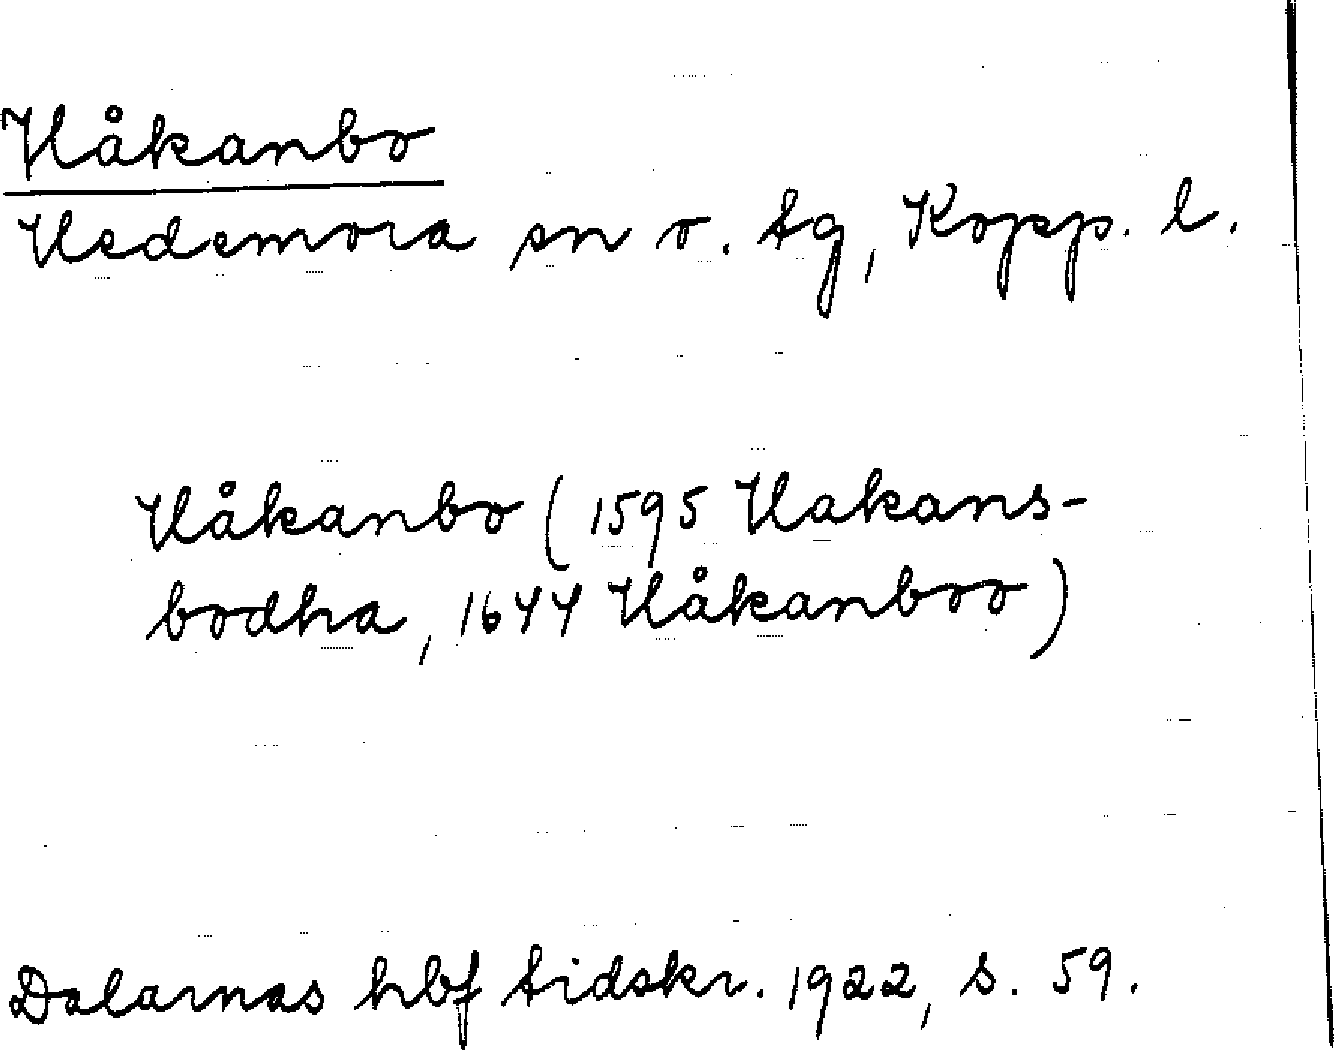 Håkanbo
Hedemora sn o. tg, Kopp. l.
Håkanbo (1595 Hakans-
bodha, 1644 Håkanboo)
Dalarnas hbf tidskr. 1922, s. 59.